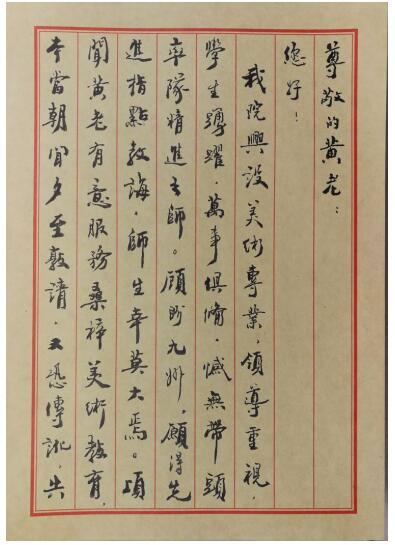 尊敬的黄老：
您好！
我院興設美術專業，領導重視，
學生踴躍，萬事俱備，憾無帶頭
率隊精進之師。顧盼九州，願得先
進指點教誨，師生幸莫大焉。頃
聞黄老有意服務桑梓美術教育，
本當朝聞夕至敦請，又恐傳訛，失